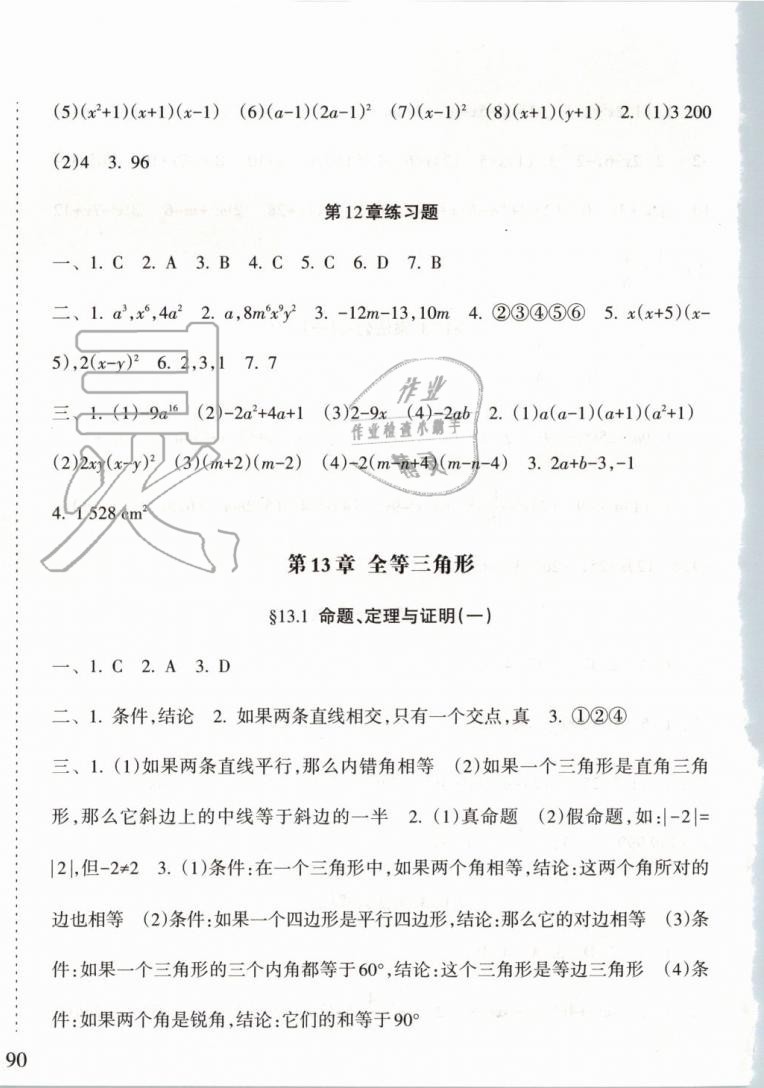 (5)(x²+1)(x+1)(x-1) (6)(a-1)(2a-1)² (7)(x-1)² (8)(x+1)(y+1) 2. (1)3 200
(2)4 3. 96
第12章练习题
一、1. C 2. A 3. B 4. C 5. C 6. D 7. B
二、1. a³,x⁶,4a² 2. a,8m⁶x⁹y² 3. -12m-13,10m 4. ②③④⑤⑥ 5. x(x+5)(x-
5),2(x-y)² 6. 2,3,1 7. 7
三、1. (1)-9a¹⁶ (2)-2a²+4a+1 (3)2-9x (4)-2ab 2. (1)a(a-1)(a+1)(a²+1)
(2)2xy(x-y)² (3)(m+2)(m-2) (4)-2(m-n+4)(m-n-4) 3. 2a+b-3,-1
4. 1 528 cm²
第13章 全等三角形
§13.1 命题、定理与证明(一)
一、1. C 2. A 3. D
二、1. 条件,结论 2. 如果两条直线相交,只有一个交点,真 3. ①②④
三、1. (1)如果两条直线平行,那么内错角相等 (2)如果一个三角形是直角三角
形,那么它斜边上的中线等于斜边的一半 2. (1)真命题 (2)假命题,如:|-2|=
|2|,但-2≠2 3. (1)条件:在一个三角形中,如果两个角相等,结论:这两个角所对的
边也相等 (2)条件:如果一个四边形是平行四边形,结论:那么它的对边相等 (3)条
件:如果一个三角形的三个内角都等于60°,结论:这个三角形是等边三角形 (4)条
件:如果两个角是锐角,结论:它们的和等于90°
90
作业
作业检查小助手